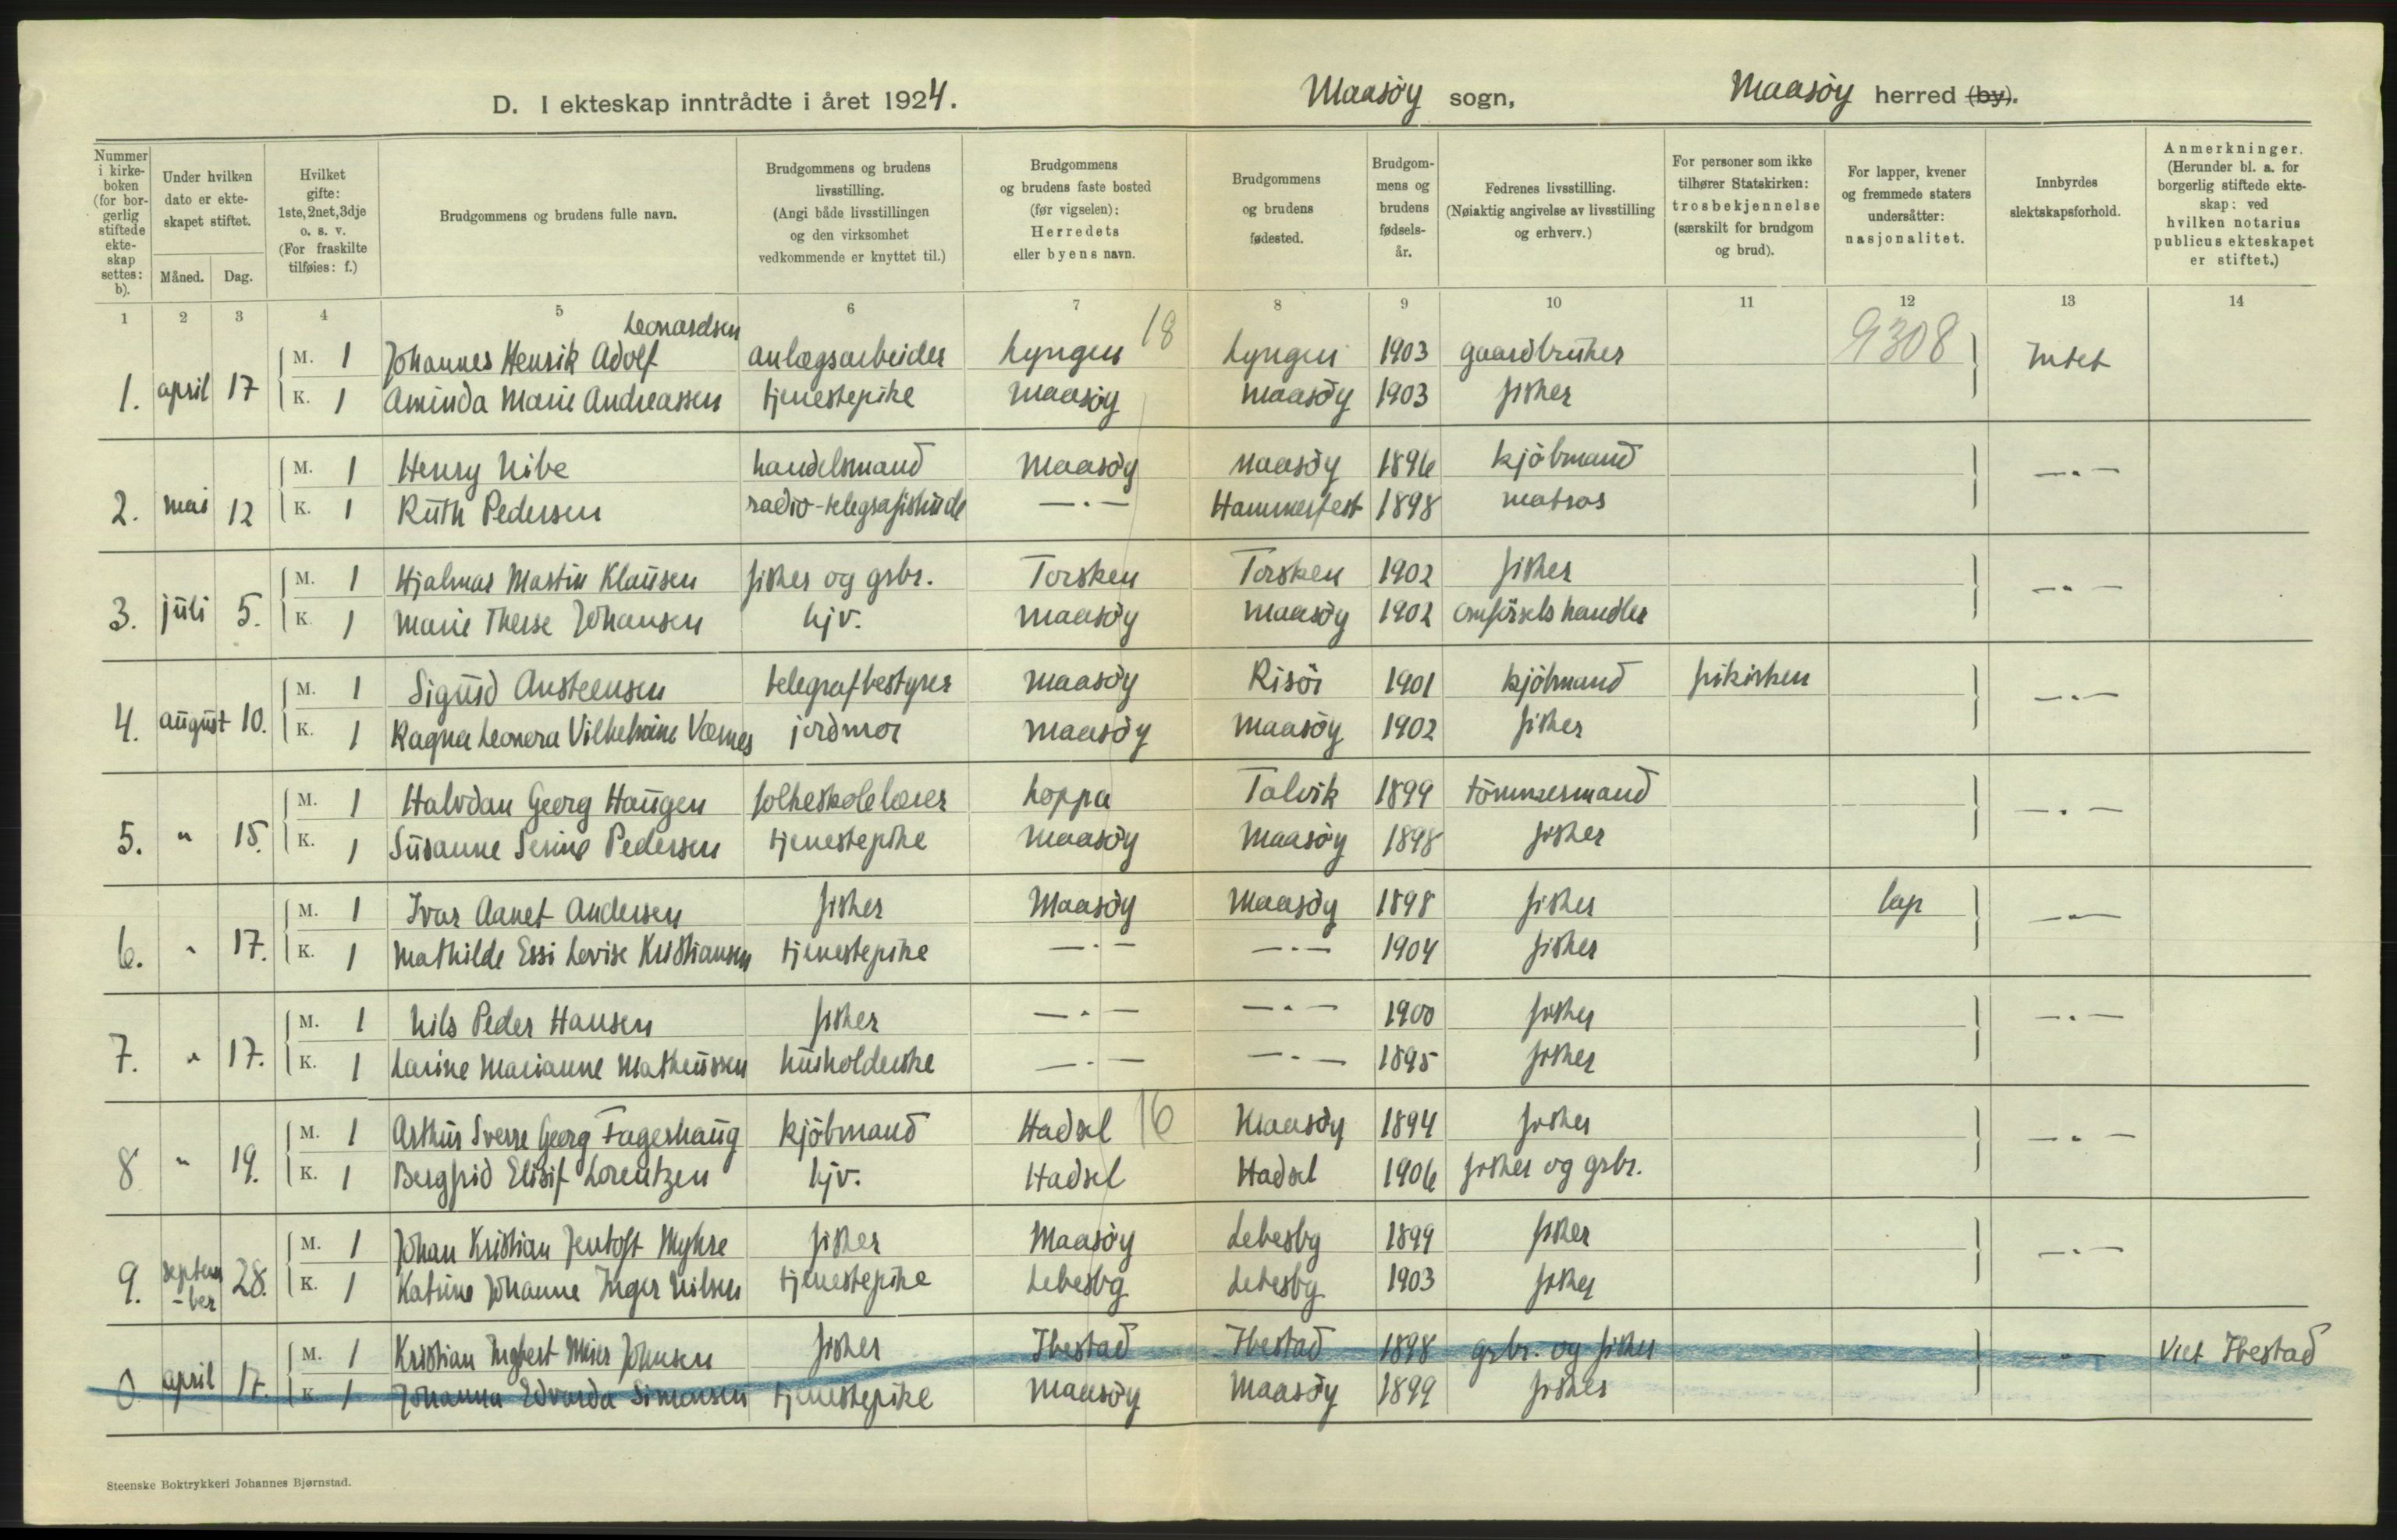 D. I ekteskap inntrådte i året 1924. Maasöy sogn, Maasöy herred (by).
Nummer i kirkeboken (for borgerlig stiftede ekteskap settes: b).
Under hvilken dato er ekteskapet stiftet.
Måned. Dag.
Hvilket gifte: 1ste, 2net, 3dje o. s. v. (For fraskilte tilføies: f.)
Brudgommens og brudens fulle navn.
Brudgommens og brudens livsstilling. (Angi både livsstillingen og den virksomhet vedkommende er knyttet til.)
Brudgommens og brudens faste bosted (før vigselen): Herredets eller byens navn.
Brudgommens og brudens fødested.
Brudgommens og brudens fødselsår.
Fedrenes livsstilling. (Nøiaktig angivelse av livsstilling og erhverv.)
For personer som ikke tilhører Statskirken: trosbekjennelse (særskilt for brudgom og brud).
For lapper, kvener og fremmede staters undersåtter: nasjonalitet.
Innbyrdes slektskapsforhold.
Anmerkninger. (Herunder bl. a. for borgerlig stiftede ekteskap: ved hvilken notarius publicus ekteskapet er stiftet.)
1 2 3 4 5 6 7 8 9 10 11 12 13 14
Leonardsen
M. 1 Johannes Henrik Adolf anlægsarbeider Lyngen 18 Lyngen 1903 gaardbruker 9308 Intet
1. april 17 K. 1 Aminda Marie Andreassen tjenestepike Maasöy Maasöy 1903 fisker
M. 1 Henry Nibe handelsmand Maasöy Maasöy 1896 kjöbmand — " —
2. mai 12 K. 1 Ruth Pedersen radio-telegrafistinde — " — Hammerfest 1898 matros
M. 1 Hjalmar Martin Klausen fisker og grbr. Torsken Torsken 1902 fisker — " —
3. juli 5. K. 1 Marie Therse Johansen hjv. Maasöy Maasöy 1902 omförselshandler
M. 1 Sigurd Austeensen telegrafbestyrer Maasöy Risör 1901 kjöbmand frikirken — " —
4. august 10. K. 1 Ragna Leonora Vilhelmine Værnes jordmor Maasöy Maasöy 1902 fisker
M. 1 Halvdan Georg Haugen folkeskolelærer Loppa Talvik 1899 tömmermand — " —
5. " 15. K. 1 Susanne Serine Pedersen tjenestepike Maasöy Maasöy 1898 fisker
M. 1 Ivar Aanet Andersen fisker Maasöy Maasöy 1898 fisker lap — " —
6. " 17. K. 1 Mathilde Essi Lovise Kristiansen tjenestepike — " — — " — 1904 fisker
M. 1 Nils Peder Hansen fisker — " — — " — 1900 fisker — " —
7. " 17. K. 1 Larine Marianne Matheussen husholderske — " — — " — 1895 fisker
M. 1 Arthur Sverre Georg Fagerhaug kjöbmand Hadsel 16 Maasöy 1894 fisker — " —
8 " 19. K. 1 Bergfrid Elisif Lorentzen hjv. Hadsel Hadsel 1906 fisker og grbr.
M. 1 Johan Kristian Jentoft Myhre fisker Maasöy Lebesby 1899 fisker — " —
9. septem-ber 28. K. 1 Katrine Johanne Inger Nilsen tjenestepike Lebesby Lebesby 1903 fisker
M. 1 Kristian Ingbert Meier Johnsen fisker Ibestad Ibestad 1898 grbr. og fisker — " — Viet Ibestad
0 april 17. K. 1 Johanna Edvarda Simonsen tjenestepike Maasöy Maasöy 1899 fisker
Steenske Boktrykkeri Johannes Bjørnstad.